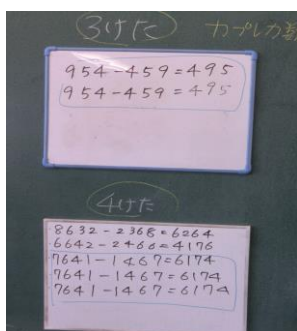 3けた
カプレカ数
954-459=495
954-459=495
4けた
8632-2368=6264
6642-2466=4176
7641-1467=6174
7641-1467=6174
7641-1467=6174